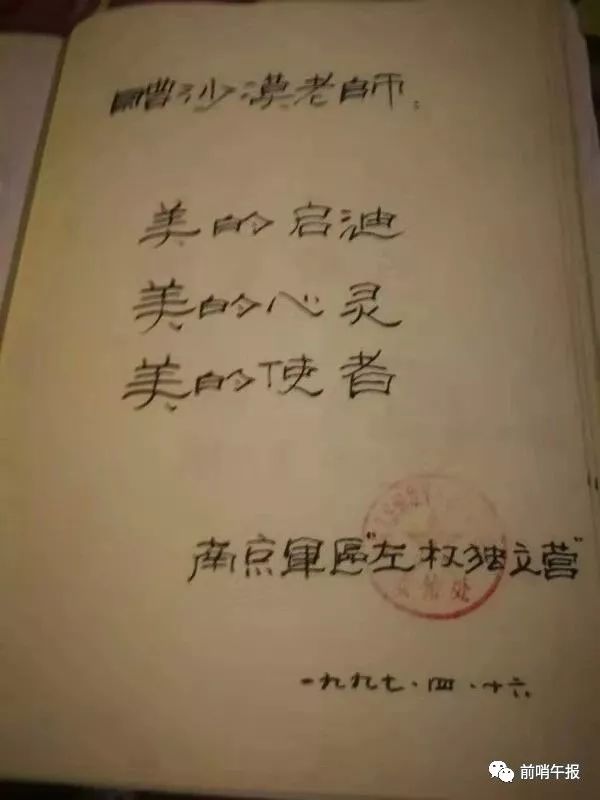 赠沙漠老師：
美的启迪
美的心灵
美的使者
南京軍區"左权独立营"
一九九七.四.十六
前哨午报